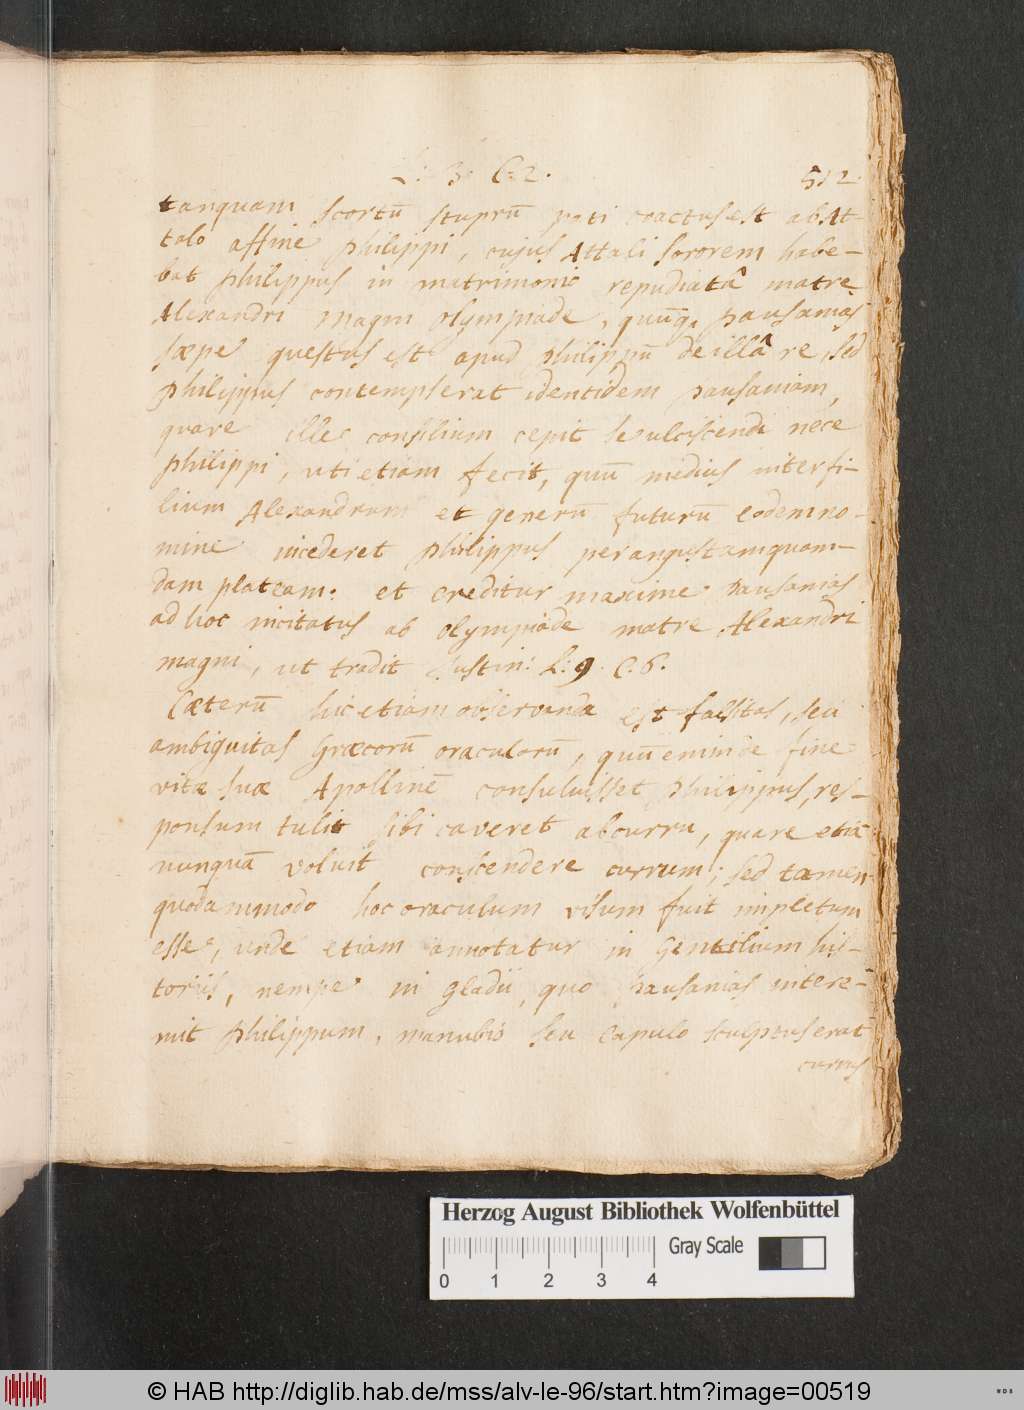 L: 3. C: 2. 512.
tanquam scortū stuprū pati coactus est ab At-
talo affine Philippi, cujus Attali sororem habe-
bat Philippus in matrimonio repudiatâ matre
Alexandri magni Olympiade, quūq; Pausanias
sæpe questus est apud Philippū de illâ re, sed
Philippus contempserat identidem Pausaniam,
quare ille consilium cepit se ulciscendi nece
Philippi, uti etiam fecit, quū medius inter fi-
lium Alexandrum et generū futurū eodem no-
mine incederet Philippus per angustam quam-
dam plateam. et creditur maxime Pausanias
ad hoc incitatus ab Olympiade matre Alexandri
magni, ut tradit Justin: L: 9. C. 6.
Cæterū hic etiam observanda est falsitas, seu
ambiguitas Græcorū oraculorū, quū enim de fine
vitæ suæ Apollinē consuluisset Philippus, res-
ponsum tulit sibi caveret a curru, quare etiā
nunquā voluit conscendere currum; sed tamen
quodammodo hoc oraculum visum fuit impletum
esse, unde etiam annotatur in Gentilium his-
toriis, nempe in gladii, quo Pausanias intere-
mit Philippum, manubio seu capulo sculptus erat
currus
Herzog August Bibliothek Wolfenbüttel
Gray Scale
0 1 2 3 4
© HAB http://diglib.hab.de/mss/alv-le-96/start.htm?image=00519